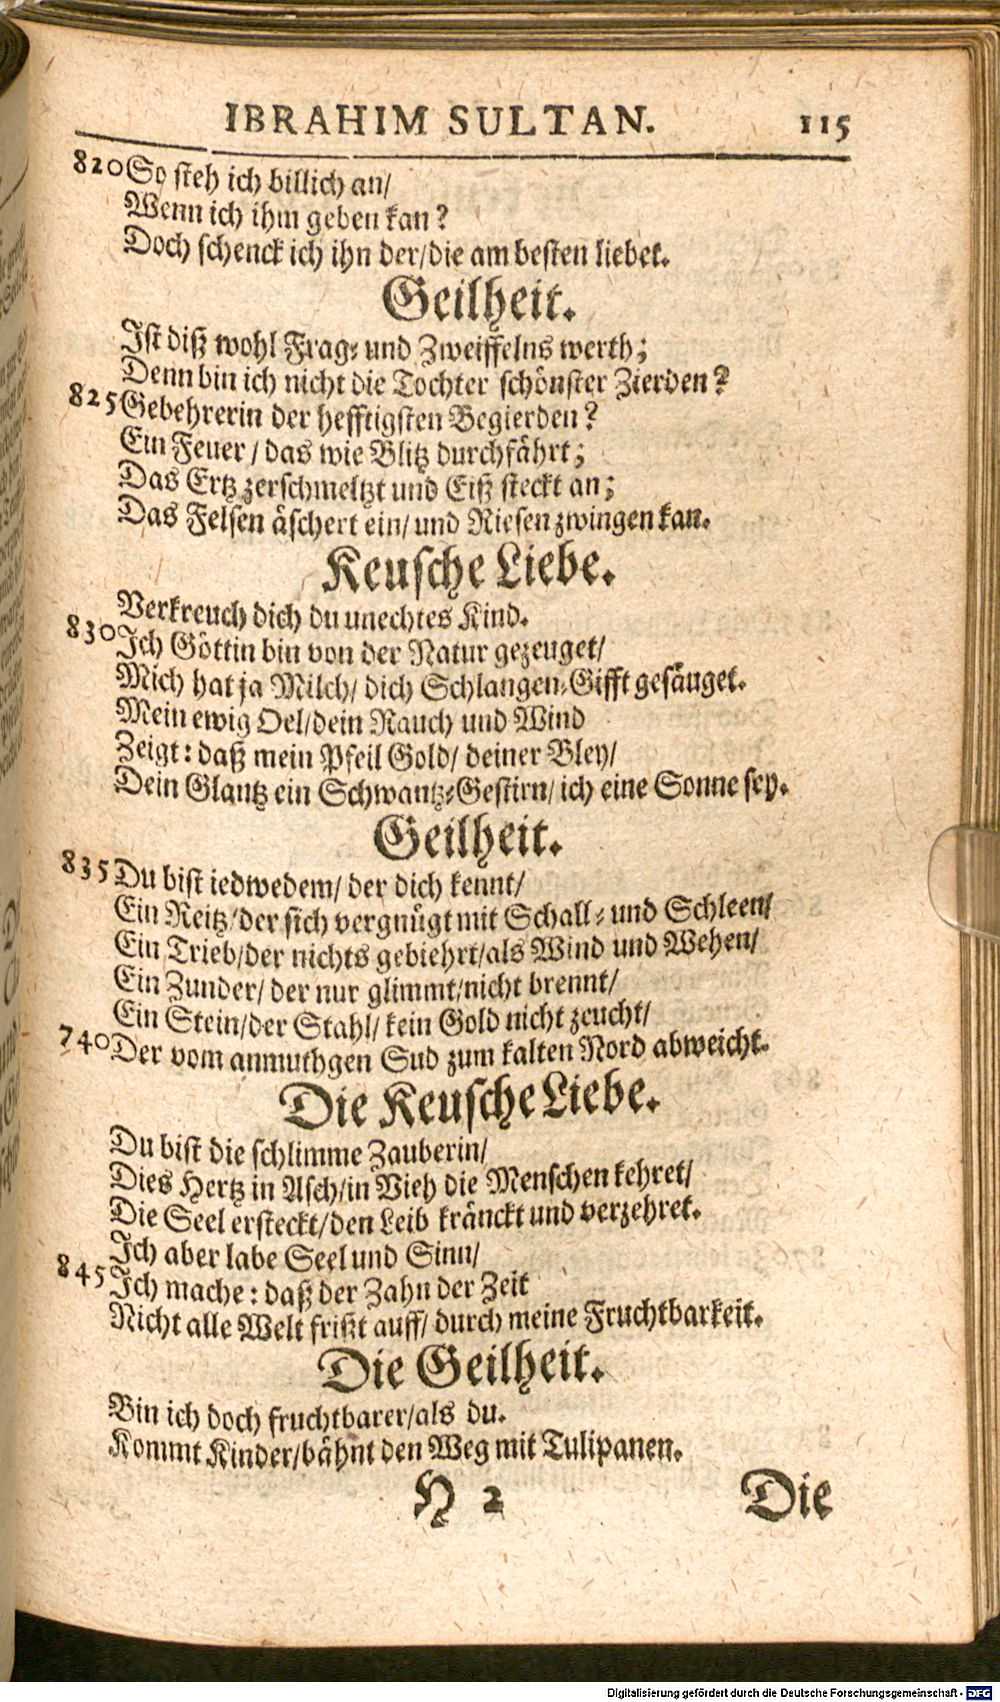 IBRAHIM SULTAN. 115
820 So steh ich billich an/
Wenn ich ihm geben kan?
Doch schenck ich ihn der/die am besten liebet.
Geilheit.
Ist diß wohl Frag- und Zweiffelns werth;
Denn bin ich nicht die Tochter schönster Zierden?
825 Gebehrerin der hefftigsten Begierden?
Ein Feuer/ das wie Blitz durchfährt;
Das Ertz zerschmeltzt und Eiß steckt an;
Das Felsen äschert ein/ und Riesen zwingen kan.
Keusche Liebe.
Verkreuch dich du unechtes Kind.
830 Ich Göttin bin von der Natur gezeuget/
Mich hat ja Milch/ dich Schlangen-Gifft gesäuget.
Mein ewig Oel/dein Rauch und Wind
Zeigt: daß mein Pfeil Gold/ deiner Bley/
Dein Glantz ein Schwantz-Gestirn/ ich eine Sonne sey.
Geilheit.
835 Du bist iedwedem/ der dich kennt/
Ein Reitz/der sich vergnügt mit Schall- und Schleen/
Ein Trieb/der nichts gebiehrt/als Wind und Wehen/
Ein Zunder/ der nur glimmt/nicht brennt/
Ein Stein/der Stahl/ kein Gold nicht zeucht/
740 Der vom anmuthgen Sud zum kalten Nord abweicht.
Die Keusche Liebe.
Du bist die schlimme Zauberin/
Dies Hertz in Asch/in Vieh die Menschen kehret/
Die Seel ersteckt/den Leib kränckt und verzehret.
Ich aber labe Seel und Sinn/
845 Ich mache: daß der Zahn der Zeit
Nicht alle Welt frißt auff/ durch meine Fruchtbarkeit.
Die Geilheit.
Bin ich doch fruchtbarer/als du.
Kommt Kinder/bähnt den Weg mit Tulipanen.
H 2 Die
Digitalisierung gefördert durch die Deutsche Forschungsgemeinschaft - DFG